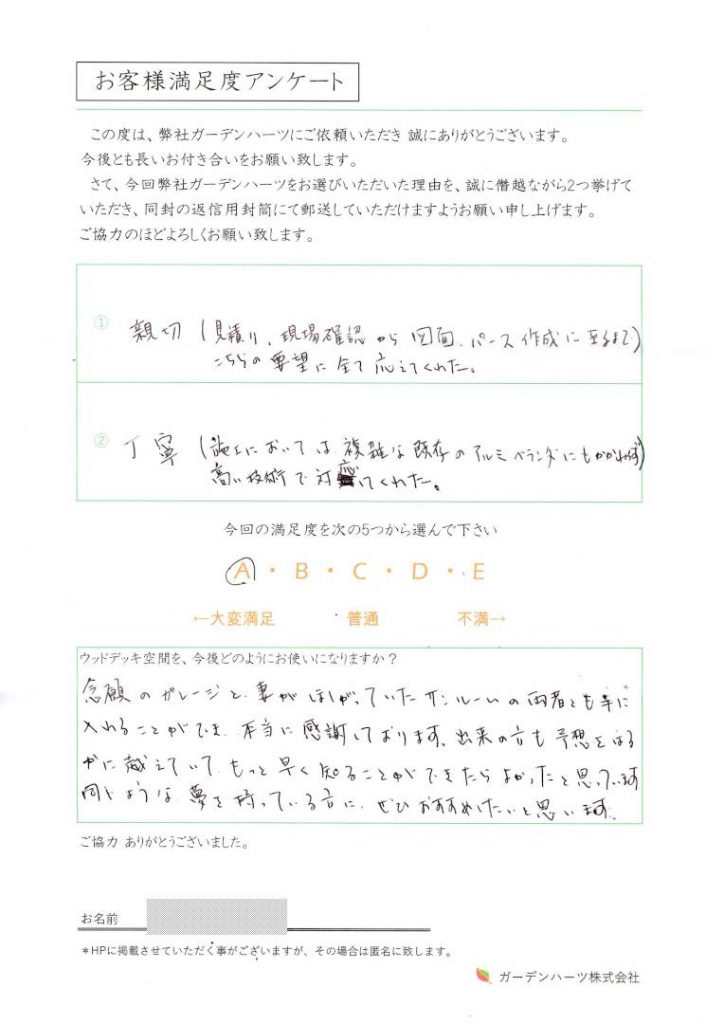 お客様満足度アンケート
この度は、弊社ガーデンハーツにご依頼いただき 誠にありがとうございます。
今後とも長いお付き合いをお願い致します。
さて、今回弊社ガーデンハーツをお選びいただいた理由を、誠に僭越ながら2つ挙げて
いただき、同封の返信用封筒にて郵送していただけますようお願い申し上げます。
ご協力のほどよろしくお願い致します。
① 親切 (見積り、現場確認から 図面、パース作成に至るまで)
こちらの要望に全て応えてくれた。
② 丁寧 (施工においては複雑な既存のアルミベランダにもかかわらず)
高い技術で対応してくれた。
今回の満足度を次の5つから選んで下さい
A・B・C・D・E
←大変満足 普通 不満→
ウッドデッキ空間を、今後どのようにお使いになりますか?
念願のガレージと、妻がほしがっていたサンルームの両者とも手に
入れることができ、本当に感謝しております。出来の方も予想をはる
かに越えていて、もっと早く知ることができたらよかったと思っています
同じような夢を持っている方に、ぜひおすすめしたいと思います。
ご協力 ありがとうございました。
お名前
*HPに掲載させていただく事がございますが、その場合は匿名に致します。
ガーデンハーツ株式会社